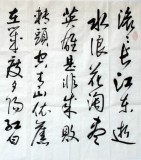 滚滚长江东逝
水浪花淘尽
英雄是非成败
转头空青山依旧
在几度夕阳红白